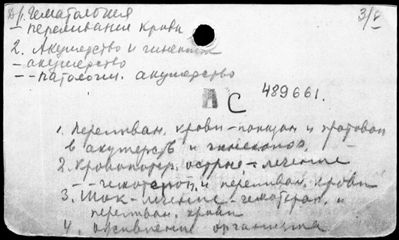 Вр. Гематология 3/8
— переливания крови
2. Акушерство и гинекол
— акушерство
-- патологич. акушерство
А С 489661.
1. Переливан. крови - показан и противопок
в акушерств и гинекологи.
2. Кровопотер. острые - лечение
-- гемотрансф. и переливан. крови
3. Шок - лечение - гемотерап. и
переливан. крови
4. оживление организма